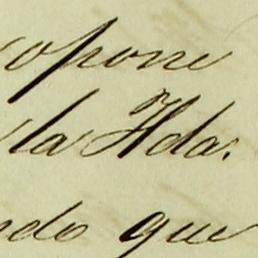 opone
la Hda.
ndo que